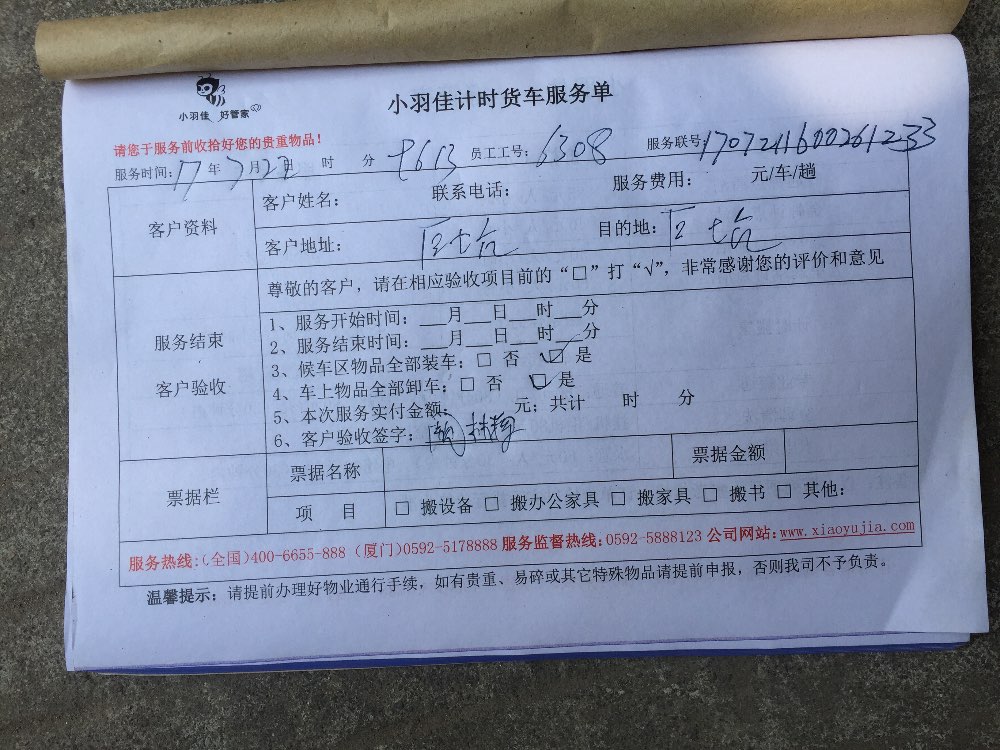 小羽佳 好管家
小羽佳计时货车服务单
请您于服务前收拾好您的贵重物品!
服务时间: 17 年 7 月 22 日 时 分 七613 员工工号: 6308 服务联号 170721160026 1233
客户资料
客户姓名: 联系电话: 服务费用: 元/车/趟
客户地址: 目的地:
服务结束
客户验收
尊敬的客户, 请在相应验收项目前的“□”打“√”, 非常感谢您的评价和意见
1、服务开始时间: ___月___日___时___分
2、服务结束时间: ___月___日___时___分
3、候车区物品全部装车: □ 否 ☑ 是
4、车上物品全部卸车: □ 否 ☑ 是
5、本次服务实付金额: 元; 共计 时 分
6、客户验收签字:
票据栏
票据名称 票据金额
项 目 □ 搬设备 □ 搬办公家具 □ 搬家具 □ 搬书 □ 其他:
服务热线:(全国)400-6655-888 (厦门)0592-5178888 服务监督热线:0592-5888123 公司网站:www.xiaoyujia.com
温馨提示: 请提前办理好物业通行手续, 如有贵重、易碎或其它特殊物品请提前申报, 否则我司不予负责。